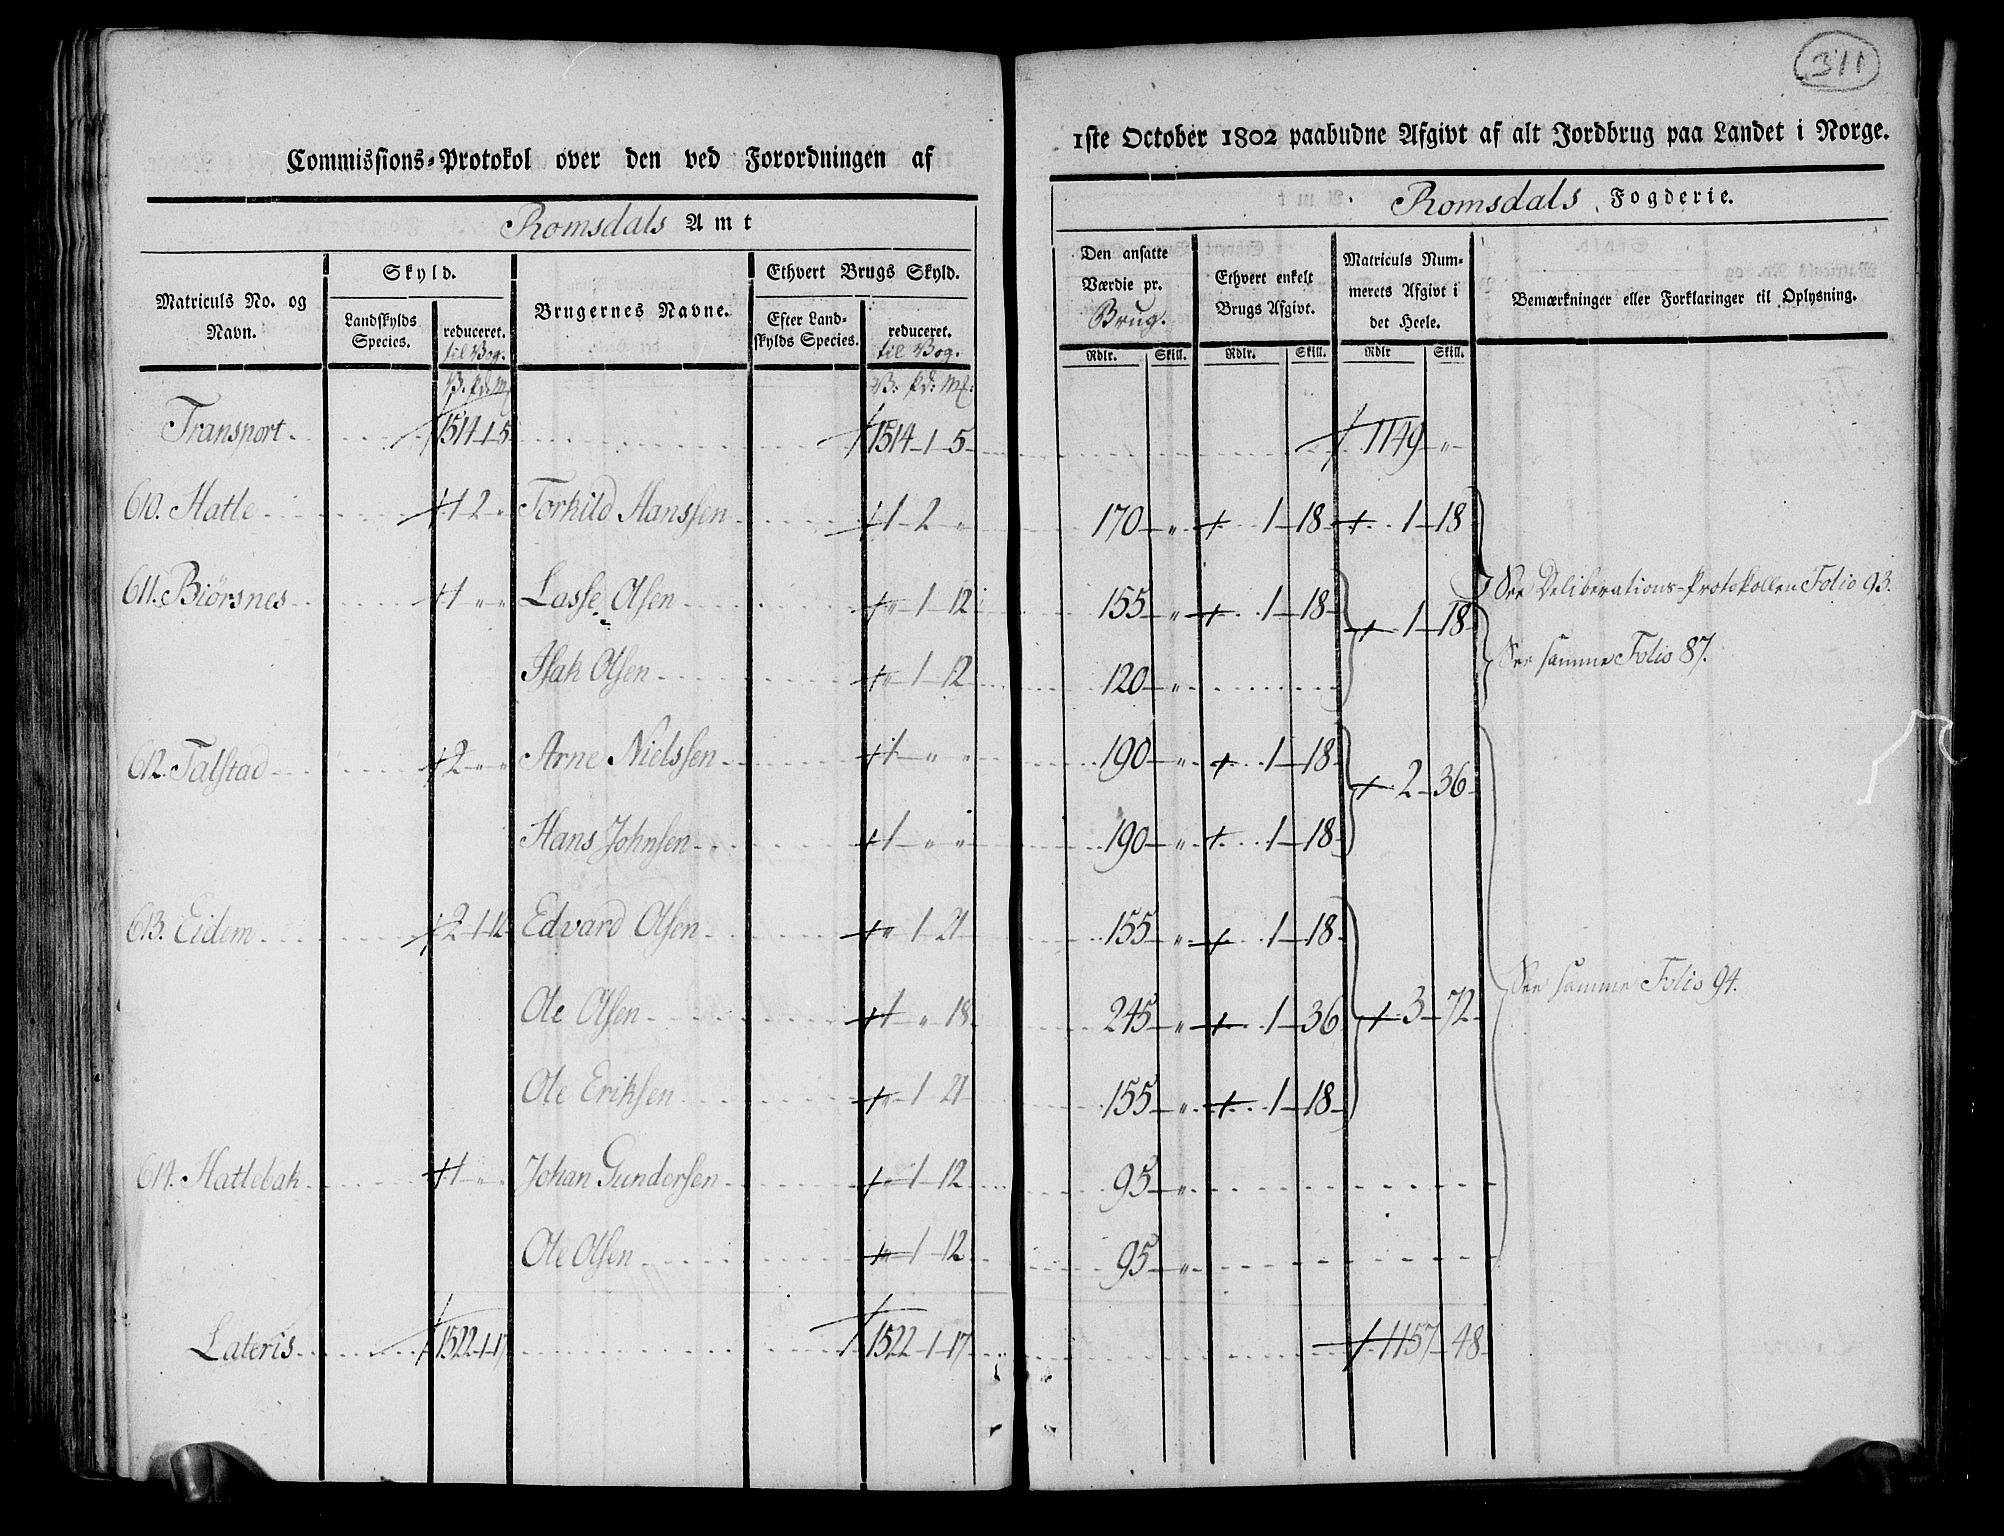 311
Commissions-Protokol over den ved Forordningen af
1ste October 1802 paabudne Afgivt af alt Jordbrug paa Landet i Norge.
Romsdals Amt
Romsdals Fogderie.
Matriculs No. og Navn.
Skyld.
Landskylds Species.
reduceret. til Vog.
Brugernes Navne.
Ethvert Brugs Skyld.
Efter Landskylds Species.
reduceret. til Vog.
Den ansatte Værdie pr. Brug.
Ethvert enkelt Brugs Afgivt.
Matriculs Nummerets Afgivt i det Heele.
Bemærkninger eller Forklaringer til Oplysning.
Rdlr. Skill. Rdlr. Skill. Rdlr Skill.
V. pd: Mk: V: pd: Mk:
Transport. 1514-1-5 1514-1-5 1149 "
610. Hatle 1 2 " Torkild Hanssen 1-2 " 170 " 1-18 1-18
See Deliberations-Protokollen Folio 93.
611. Biørsnes 1 " " Lasse Olsen " 1-12 155 " 1-18 1-18
Isak Olsen " 1-12 120 "
See samme Folio 87.
612. Talstad 2 " " Arne Nielssen 1 " " 190 " 1-18 2-36
Hans Johnsen 1 " " 190 " 1-18
613. Eidem 2-1-12 Edvard Olsen " 1 21 155 " 1-18 3-72
Ole Olsen 1 " 18 245 " 1-36
See samme Folio 94.
Ole Eriksen " 1 21 155 " 1-18
614. Hatlebak 1 " " Johan Gundersen " 1-12 95 "
Ole Olsen " 1 12 95 "
Lateris 1522-1-17 1522-1-17 1157-48